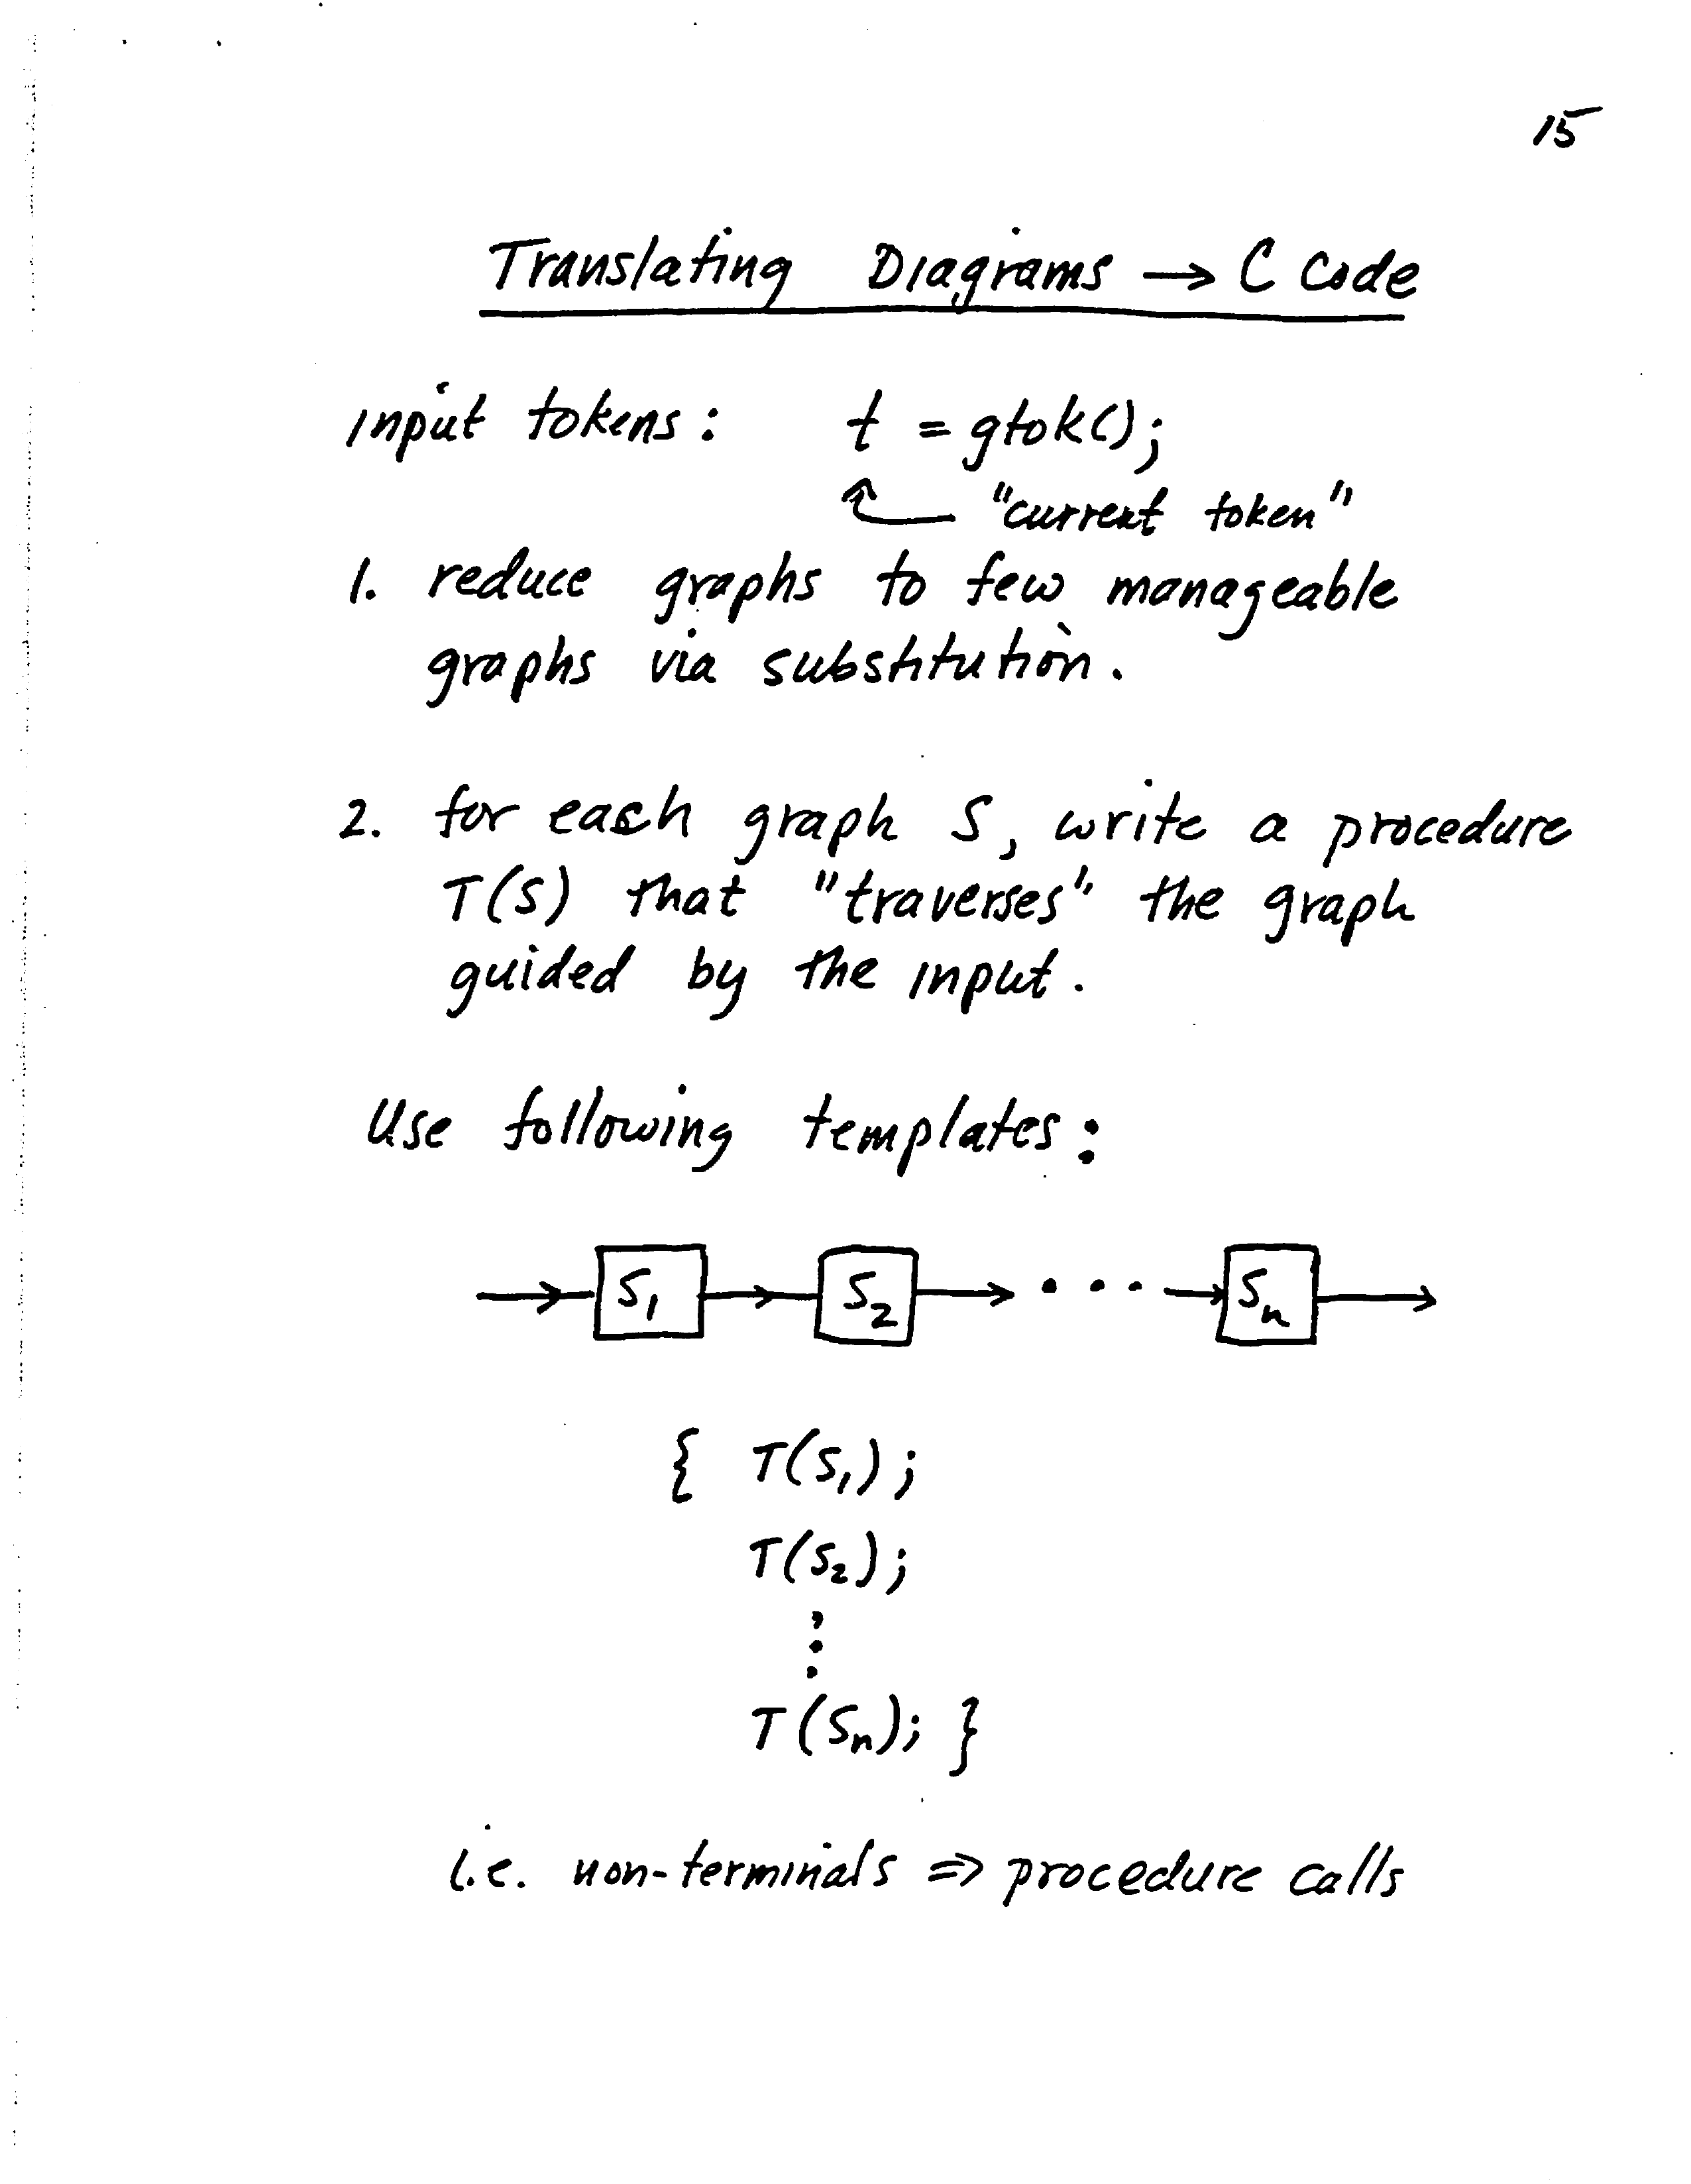 15
Translating Diagrams → C Code
input tokens: t = gtok();
"current token"
1. reduce graphs to few manageable
graphs via substitution.
2. for each graph S, write a procedure
T(S) that "traverses" the graph
guided by the input.
Use following templates:
S₁ S₂ ... Sₙ
{ T(S₁);
T(S₂);
⋮
T(Sₙ); }
i.e. non-terminals ⇒ procedure calls